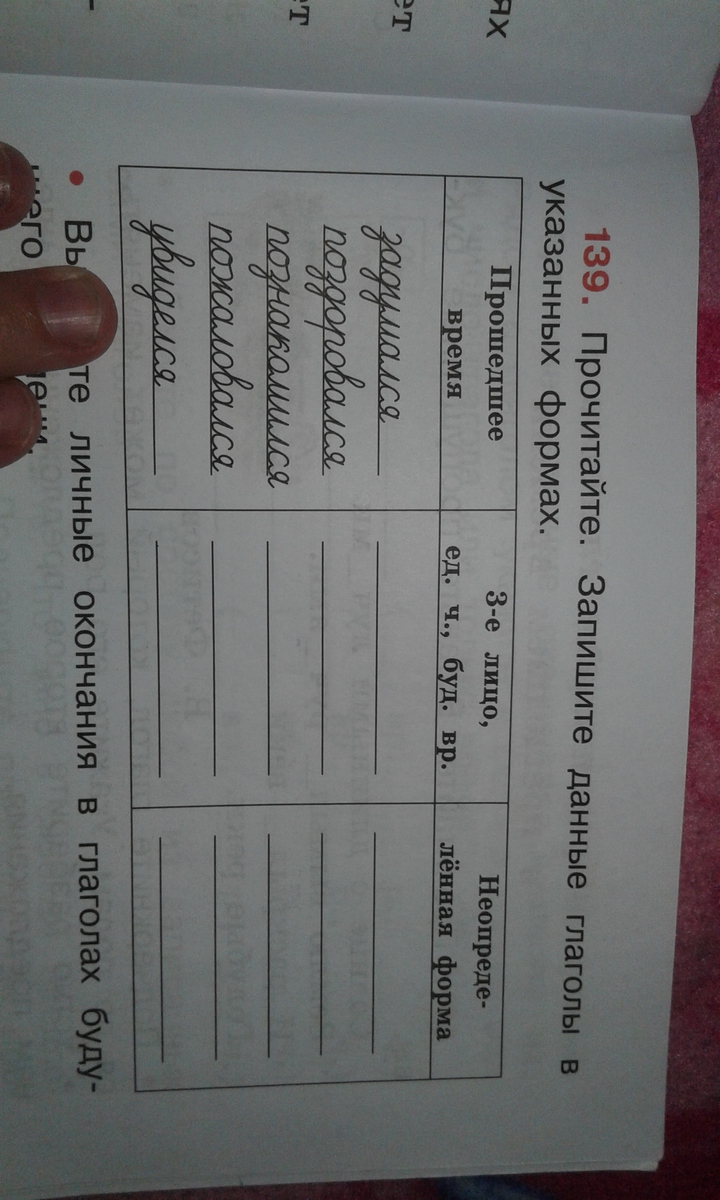 ях
ет
ет
139. Прочитайте. Запишите данные глаголы в
указанных формах.
Прошедшее
время
3-е лицо,
ед. ч., буд. вр.
Неопреде-
лённая форма
задумался
поздоровался
познакомился
пожаловался
увиделся
• личные окончания в глаголах буду-